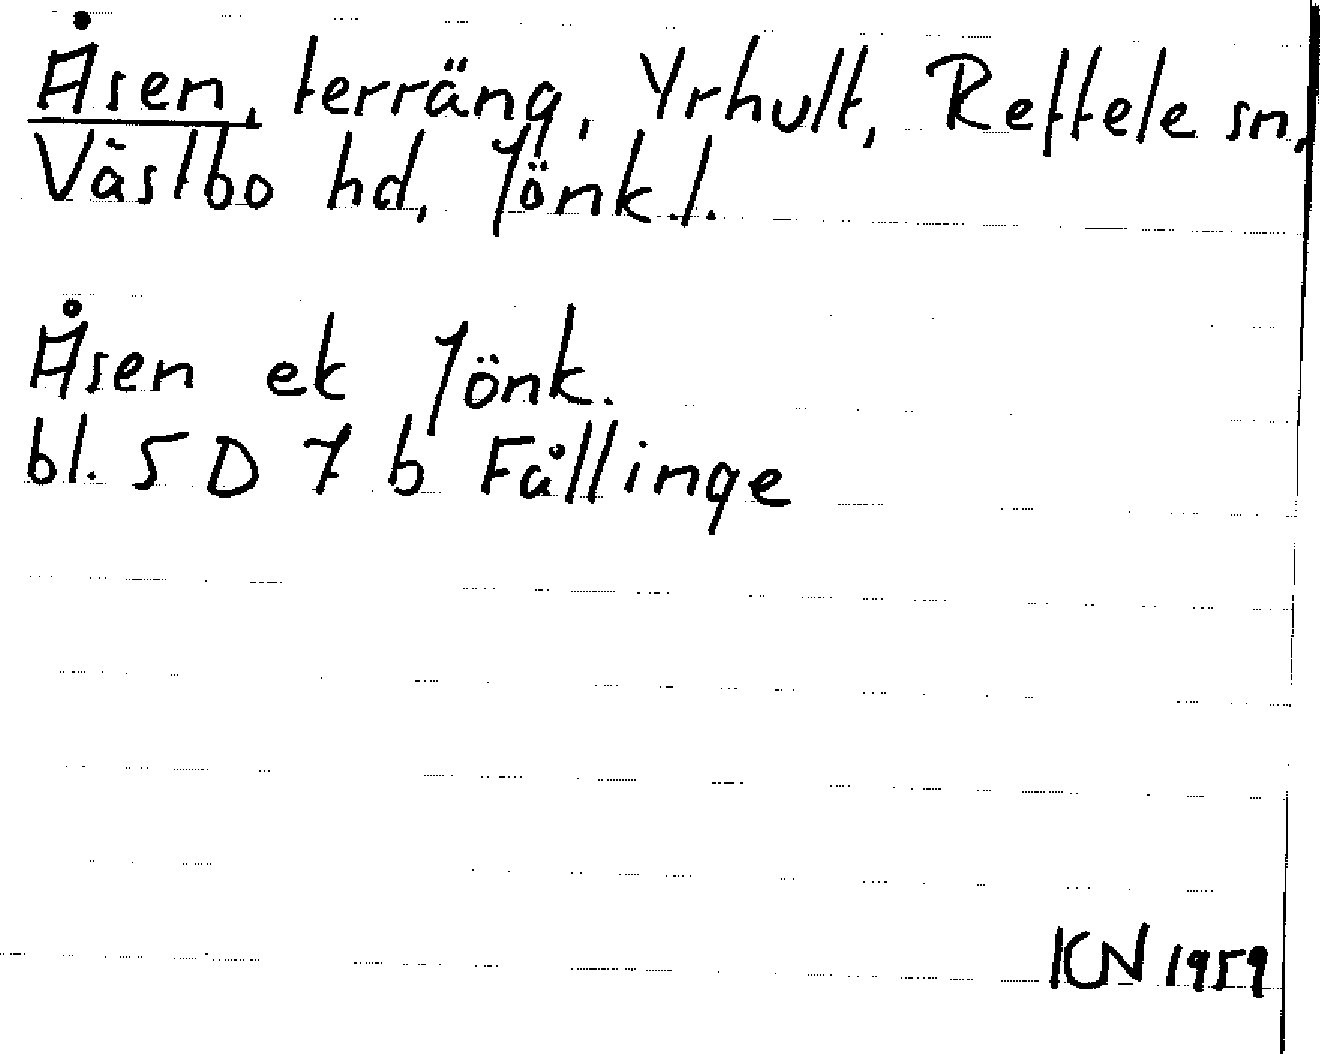 Åsen, terräng, Yrhult, Reftele sn,
Västbo hd, Jönk.l.
Åsen ek Jönk.
bl. 5 D 7 b Fållinge
KN 1959